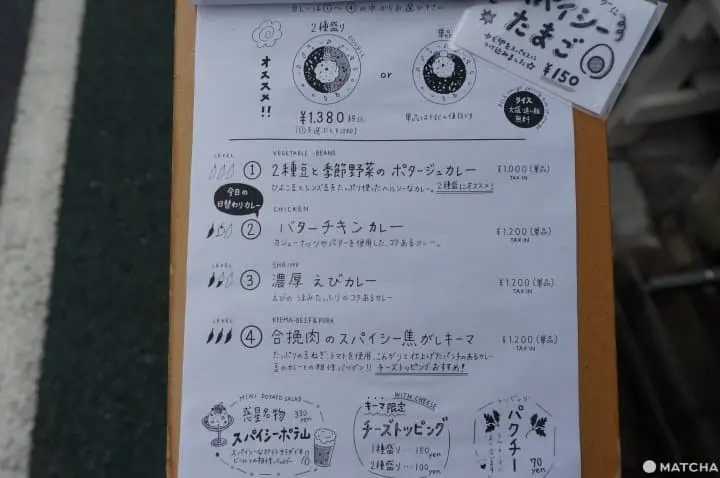 カレーは①〜④の中からお選び下さい
スパイシー
たまご
¥150
オススメ!!
2種盛り
DOUBLE
or
単品
¥1,380 税込
ライス
大盛
無料
LEVEL
① VEGETABLE・BEANS
2種豆と季節野菜の ポタージュカレー
¥1,000(単品)
TAX IN
ひよこ豆とレンズ豆をたっぷり使ったヘルシーなカレー。2種盛にオススメ!
今日の
日替わりカレー
② CHICKEN
バターチキンカレー
¥1,200(単品)
TAX IN
カシューナッツやバターを使用した、コクあるカレー。
LEVEL
③ SHRIMP
濃厚 えびカレー
¥1,200(単品)
TAX IN
えびの うまみたっぷりの コクあるカレー
LEVEL
④ KEEMA-BEEF&PORK
合挽肉のスパイシー焦がしキーマ
¥1,200(単品)
TAX IN
たっぷりの玉ねぎ、トマトを使用、こんがりと仕上げたパンチのあるカレー
豆のカレーとの相性バツグン!! チーズトッピングおすすめ!
MINI POTATO SALAD
惑星名物 330 yen
スパイシーポテ山
WITH CHEESE
キーマ限定
チーズトッピング
1種盛り…150 yen
2種盛り…100 yen
トッピング
パクチー
70 yen
MATCHA